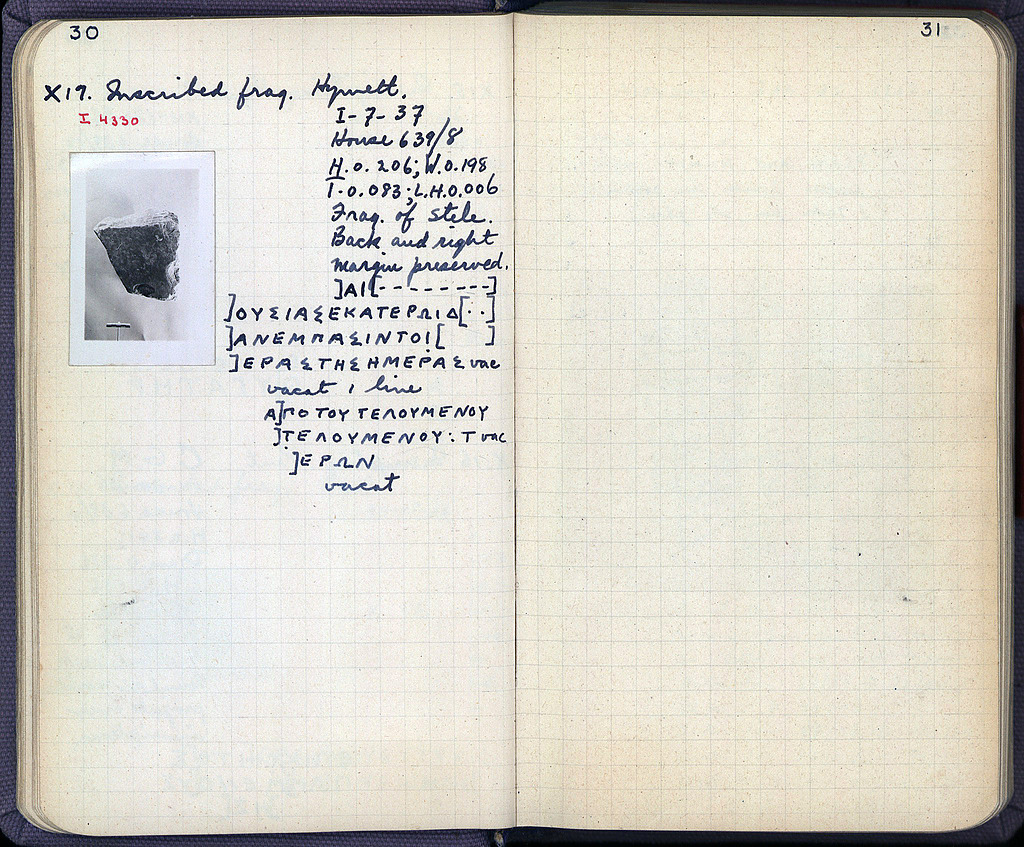 30
31
X17. Inscribed frag. Hymett.
I 4330
I-7-37
House 639/8
H. 0.206; W. 0.198
T. 0.083; L.H. 0.006
Frag. of stele.
Back and right
margin preserved.
]ΑΙ[--------]
]ΟΥΣΙΑΣΕΚΑΤΕΡΩΙΔ[··]
]ΑΝΕΜΠΑΣΙΝΤΟΙ[  ]
]ΕΡΑΣΤΗΣΗΜΕΡΑΣ vac
vacat 1 line
Α]ΠΟ ΤΟΥ ΤΕΛΟΥΜΕΝΟΥ
]ΤΕΛΟΥΜΕΝΟΥ: Τ vac
]ΕΡΩΝ
vacat